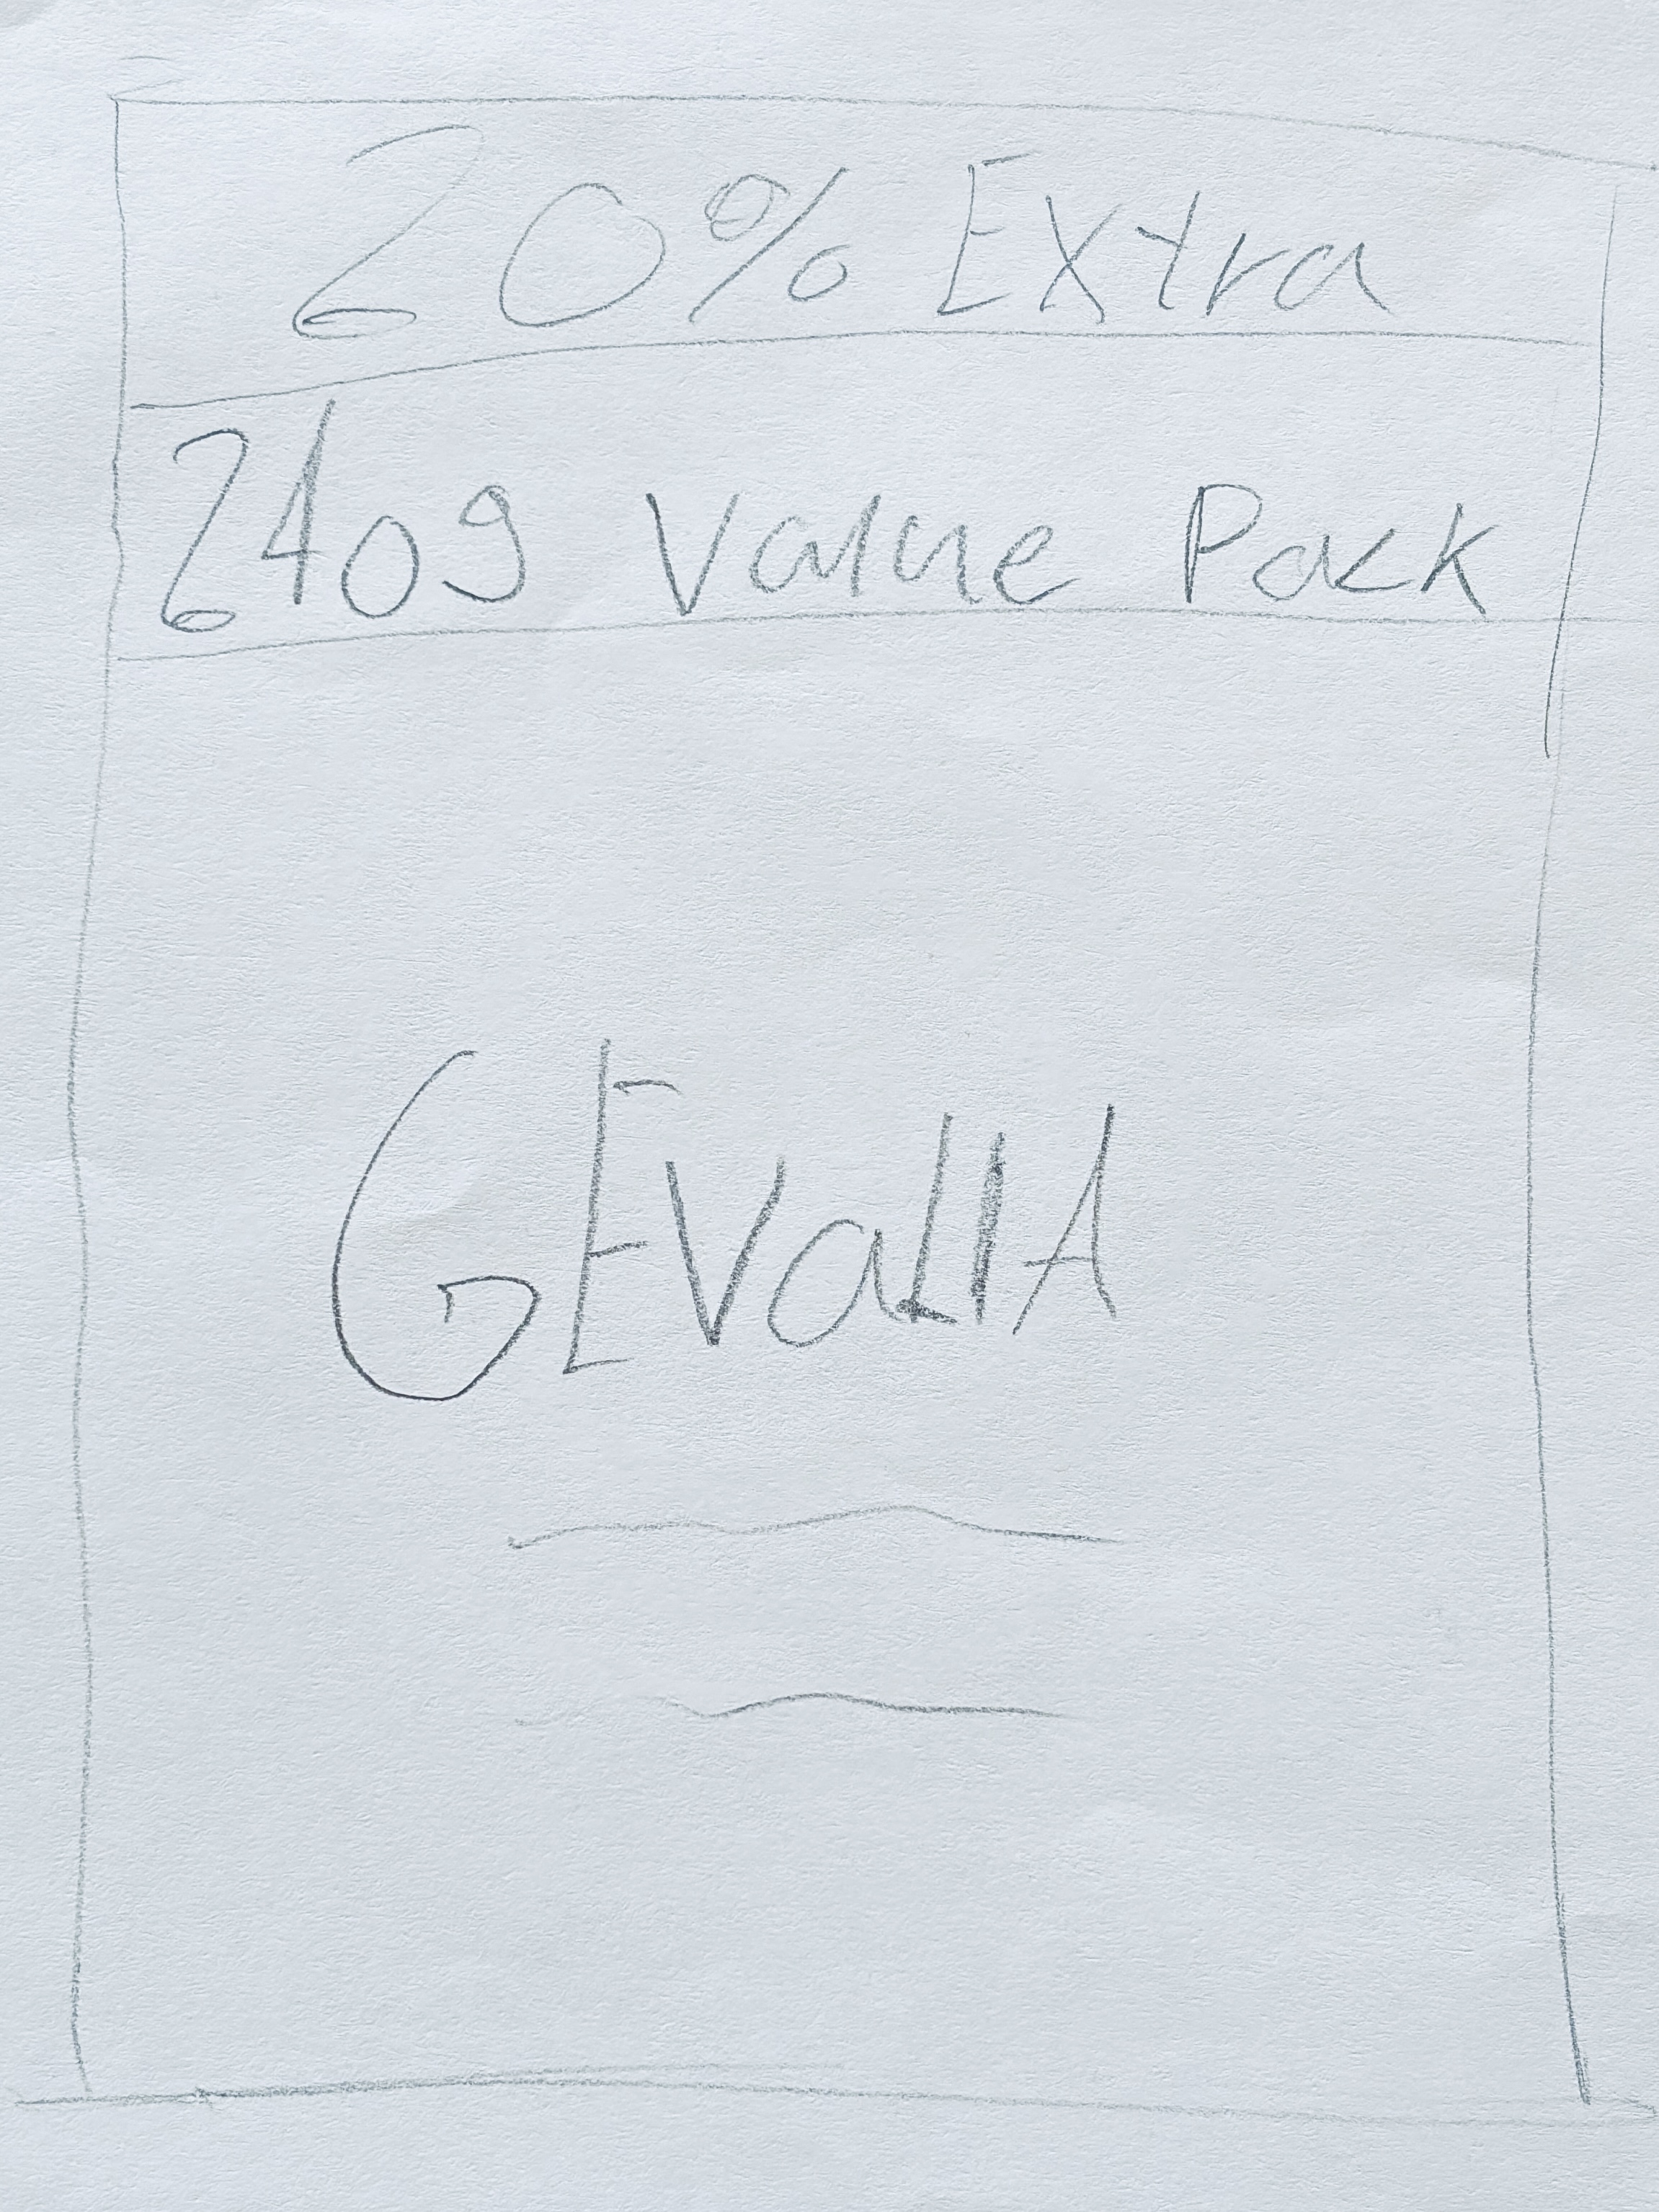 20% Extra
240g Value Pack
GEValIA